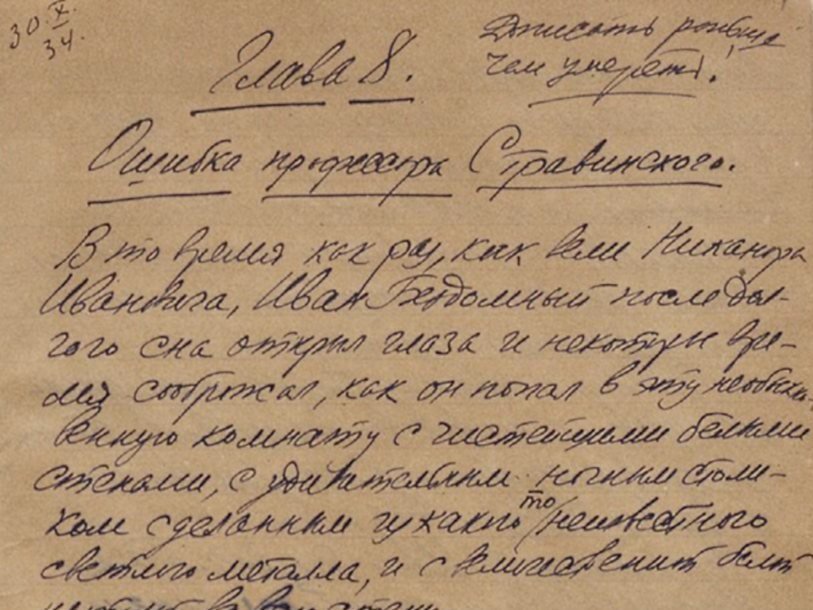 30.X.34.
Дописать раньше
чем умереть!
Глава 8.
Ошибка профессора Стравинского.
В то время как раз, как вели Никанора
Ивановича, Иван Бездомный после дол-
гого сна открыл глаза и некоторое вре-
мя соображал, как он попал в эту необыкно-
венную комнату с чистейшими белыми
стенами, с удивительным ночным столи-
ком сделанным из какого то неизвестного
светлого металла, и с величественной белой